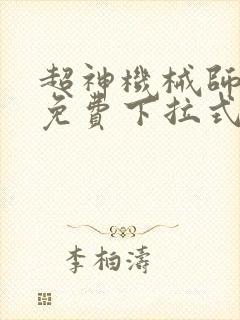 超神機械師
免費下拉式
李柏濤